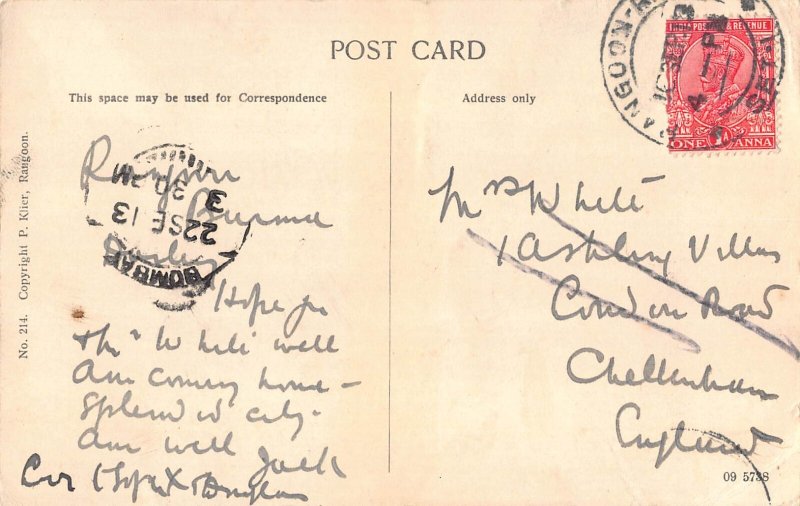 POST CARD
This space may be used for Correspondence
Address only
No. 214. Copyright P. Klier, Rangoon.
Rangoon
Burma
Hope you
& Mr White well
Am coming home -
Splendid city.
Am well Jack
Mrs White
1 Ashling Villas
London Road
Cheltenham
England
INDIA POSTAGE & REVENUE
ONE 1A ANNA
RANGOON
BOMBAY
22 SE 13
3
30 PM
09 5738